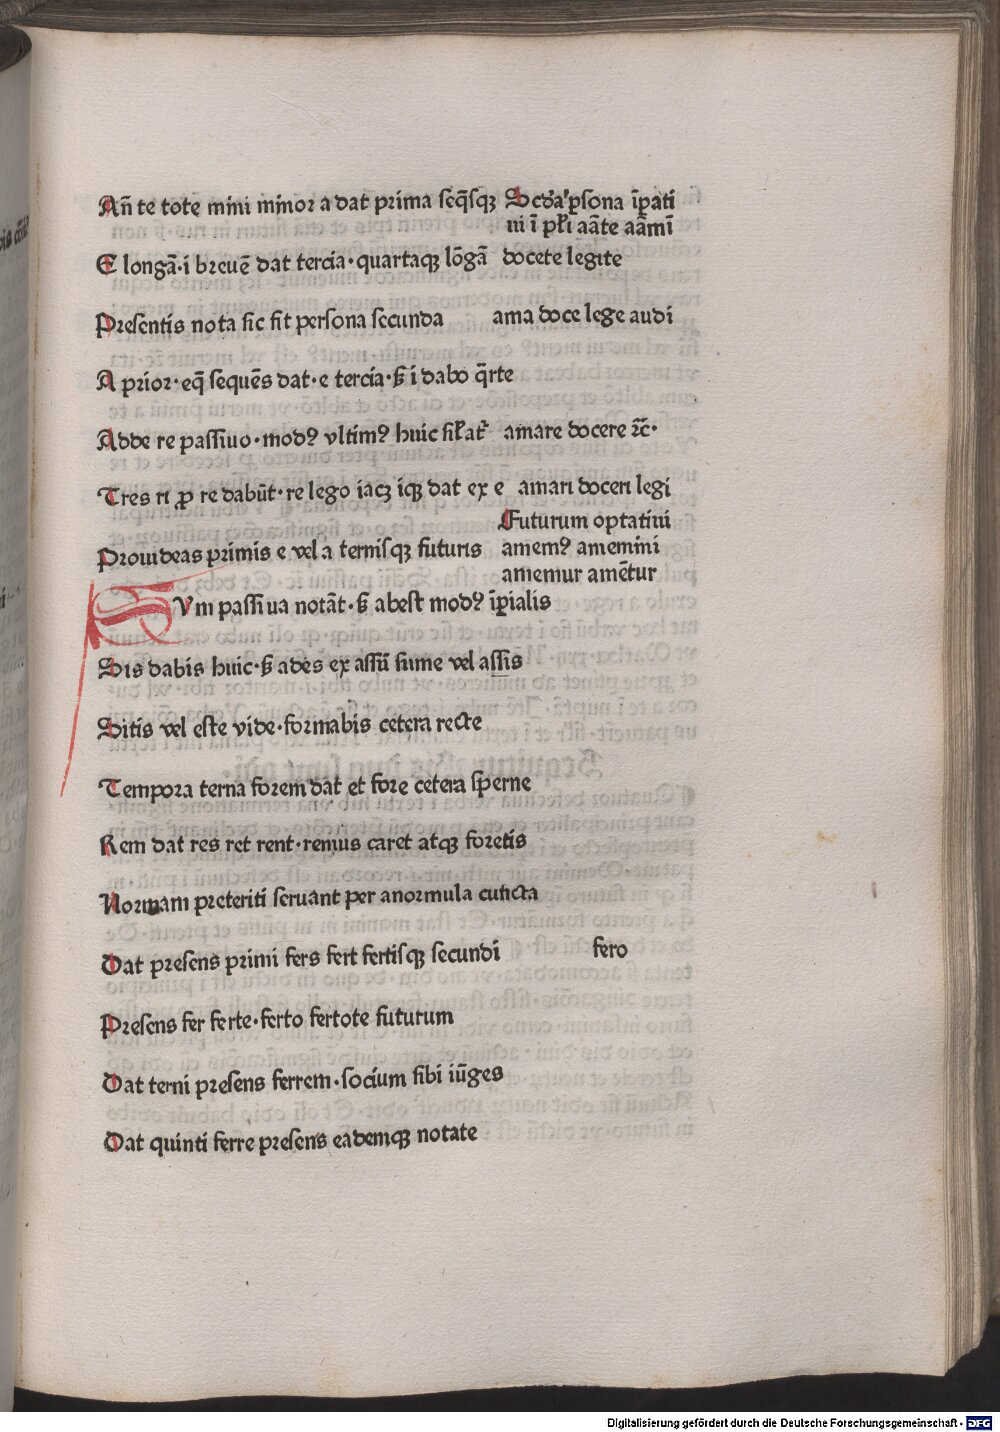 Añ te tote mini minor a dat prima seq̃sqꝫ Scd̃a ꝑsona ĩpati
ui ĩ pl̃i aãte aãmĩ
E longã·i breuẽ dat tercia·quartaqꝫ lõgã docete legite
Presentis nota sic sit persona secunda ama doce lege audi
A prior·eq̃ sequẽs dat·e tercia·ß i dabo q̃rte
Adde re passiuo·modꝰ vltimꝰ huic sil̃at᷑ amare docere ⁊c̃·
Tres ri ꝓ re dabũt·re lego iacꝫ iqꝫ dat ex e amari doceri legi
Futurum optatiui
Prouideas primis e vel a ternisqꝫ futuris amemꝰ amemini
amemur amẽtur
SVm passiua notãt·ß abest modꝰ ĩꝑialis
Sis dabis huic·ß ades ex assũ sume vel assis
Sitis vel este vide·formabis cetera recte
Tempora terna forem dat et fore cetera sperne
Rem dat res ret rent·remus caret atqꝫ foretis
Normam preteriti seruant per anormula cuncta
Dat presens primi fers fert fertisqꝫ secundĩ fero
Presens fer ferte·ferto fertote futurum
Dat terni presens ferrem·socium sibi iũges
Dat quinti ferre presens eademqꝫ notate
Digitalisierung gefördert durch die Deutsche Forschungsgemeinschaft - DFG